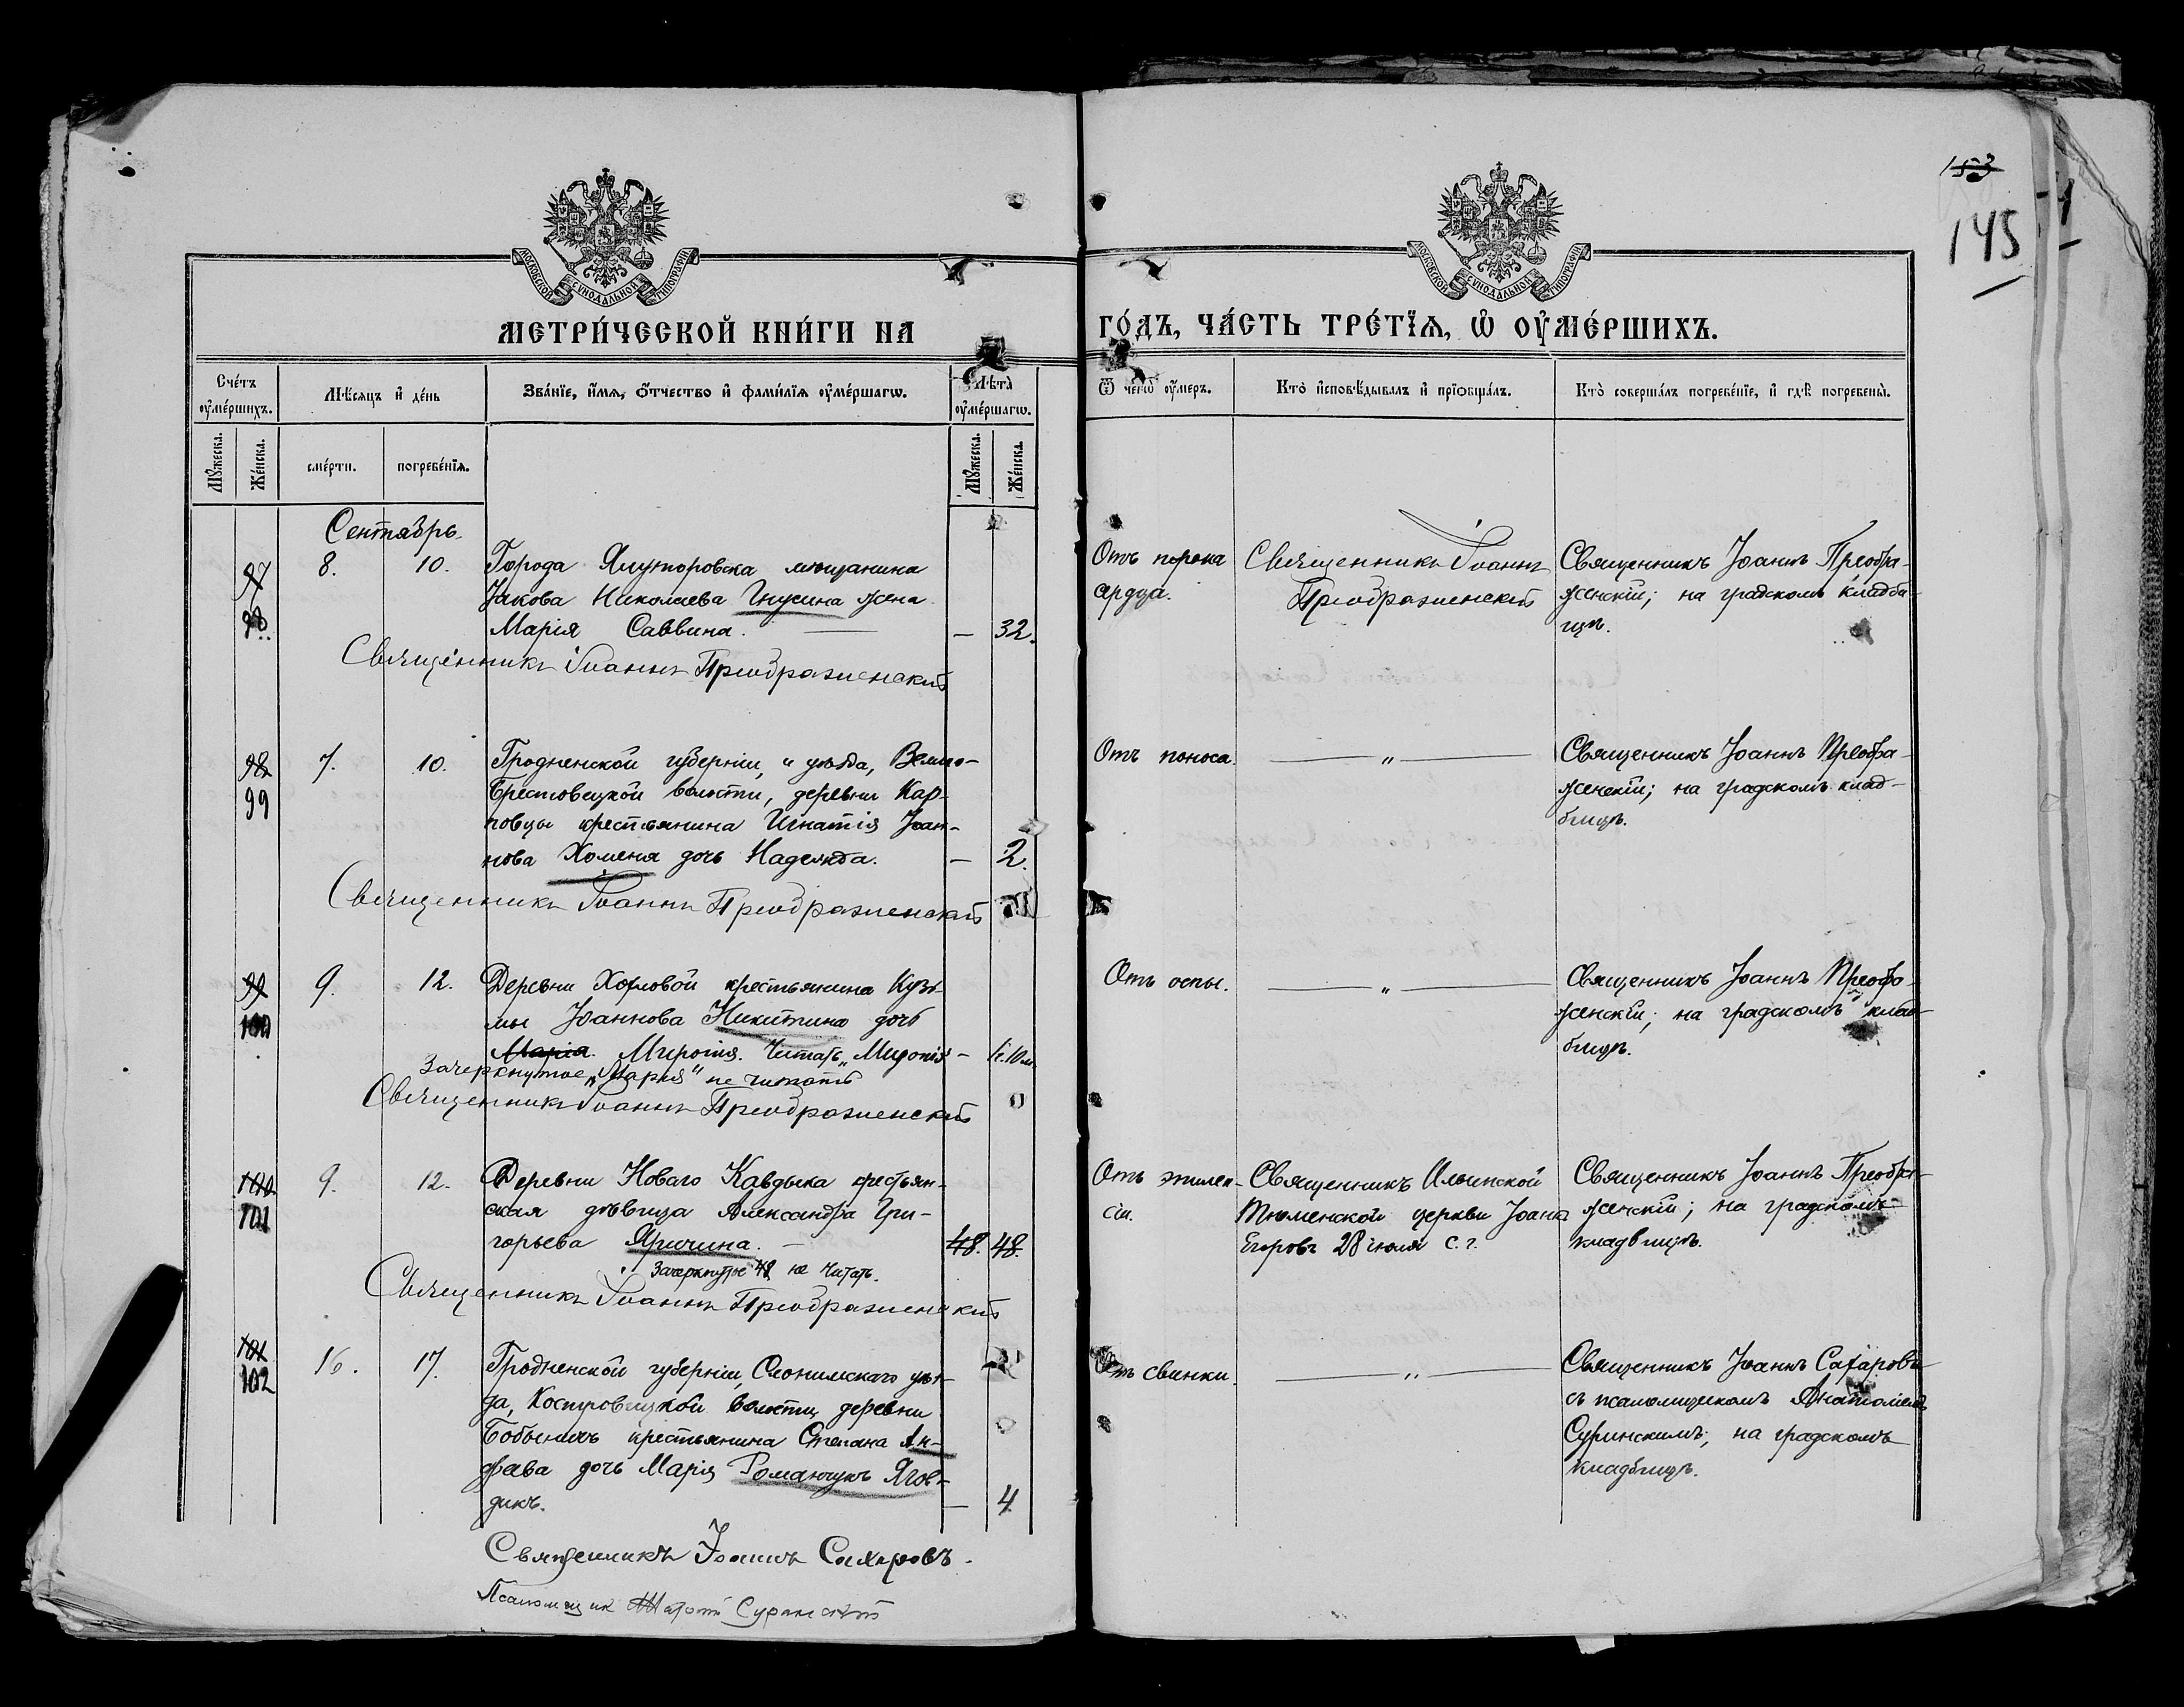 153
145
МОСКОВСКОЙ СѴНОДАЛЬНОЙ ТИПОГРАФІИ
МОСКОВСКОЙ СѴНОДАЛЬНОЙ ТИПОГРАФІИ
МЕТРИ́ЧЕСКОЙ КНИ́ГИ НА
ГО́ДЪ, ЧА́СТЬ ТРЕ́ТЇѦ, Ѡ҆ ОУ҆МЕ́РШИХЪ.
Сче́тъ оу҆ме́ршихъ.
Мѣ́сѧцъ и҆ де́нь
Зва́нїе, и҆́мѧ, ѻ҆́тчество и҆ фами́лїѧ оу҆ме́ршагѡ.
Лѣ́та оу҆ме́ршагѡ.
Ѿ чегѡ̀ оу҆́меръ.
Кто̀ и҆сповѣ́дывалъ и҆ прїѡбща́лъ.
Кто̀ соверша́лъ погребе́нїе, и҆ гдѣ̀ погребены̀.
Мꙋ́жеска.
Же́нска.
сме́рти.
погребе́нїѧ.
Мꙋ́жеска.
Же́нска.
Сентябрь.
97
98
8.
10.
Города Ялуторовска мѣщанина
Іакова Николаева Гнусина жена
Марія Саввина. — — 32.
Отъ порока
сердца.
Священникъ Іоаннъ
Преображенскій
Священникъ Іоаннъ Преобра-
женскій; на градскомъ кладби-
щѣ.
Священникъ Іоаннъ Преображенскій
98
99
7.
10.
Гродненской губерніи, и уѣзда, Велико-
Берестовицкой волости, деревни Кар-
повцы крестьянина Игнатія Іоан-
нова Хоменя дочь Надежда. — 2.
Отъ поноса.
— „ —
Священникъ Іоаннъ Преобра-
женскій; на градскомъ клад-
бищѣ.
Священникъ Іоаннъ Преображенскій
99
100
9.
12.
Деревни Хохловой крестьянина Кузь-
мы Іоаннова Никитина дочь
Марія. Миропія. Читать „Миропія — 10 м.
Зачеркнутое „Марія" не читать
Отъ оспы.
— „ —
Священникъ Іоаннъ Преобра-
женскій; на градскомъ клад-
бищѣ.
Священникъ Іоаннъ Преображенскій
100
101
9.
12.
Деревни Новаго Кавдыка крестьян-
ская дѣвица Александра Гри-
горьева Яричина. — 48. 48.
Зачеркнутое 48 не читать.
Отъ эпилеп-
сіи.
Священникъ Ильинской
Тюменской церкви Іоаннъ
Егоровъ 28 іюля с. г.
Священникъ Іоаннъ Преобра-
женскій; на градскомъ
кладбищѣ.
Священникъ Іоаннъ Преображенскій
101
102
16.
17.
Гродненской губерніи, Слонимскаго уѣз-
да, Костровицкой волости, деревни
крестьянина Степана Ан-
дреева дочь Марія Романчукъ
дикъ. — 4
Отъ свинки.
— „ —
Священникъ Іоаннъ Сахаровъ
съ псаломщикомъ Анатоліемъ
Суринскимъ; на градскомъ
кладбищѣ.
Священникъ Іоаннъ Сахаровъ.
Псаломщик Анатолій Суринскій